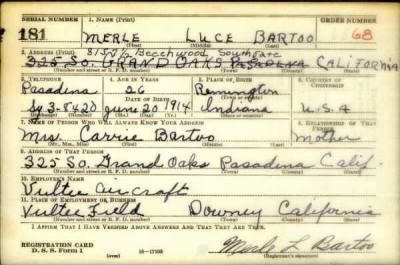 SERIAL NUMBER 1. NAME (Print)
181 MERLE LUCE BARTOO 68
(First) (Middle) (Last)
2. ADDRESS (Print)
Beechwood South Gate
325 SO. GRAND OAKS PASADENA CALIFORNIA
(Number and street or R. F. D. number) (Town) (County) (State)
3. TELEPHONE 4. AGE IN YEARS 5. PLACE OF BIRTH 6. COUNTRY OF CITIZENSHIP
Pasadena 26 Remington
DATE OF BIRTH
Sy 3-8420 June 20 1914 Indiana U.S.A
7. NAME OF PERSON WHO WILL ALWAYS KNOW YOUR ADDRESS 8. RELATIONSHIP OF THAT PERSON
Mrs. Carrie Bartoo Mother
(Mr., Mrs., Miss) (First) (Middle) (Last)
9. ADDRESS OF THAT PERSON
325 So. Grand Oaks Pasadena Calif.
(Number and street or R. F. D. number) (Town) (County) (State)
10. EMPLOYER'S NAME
Vultee Aircraft
11. PLACE OF EMPLOYMENT OR BUSINESS
Vultee Field Downey California
(Number and street or R. F. D. number) (Town) (County) (State)
I AFFIRM THAT I HAVE VERIFIED ABOVE ANSWERS AND THAT THEY ARE TRUE.
REGISTRATION CARD
D. S. S. Form 1 16—17105 Merle L Bartoo
(Registrant's signature)